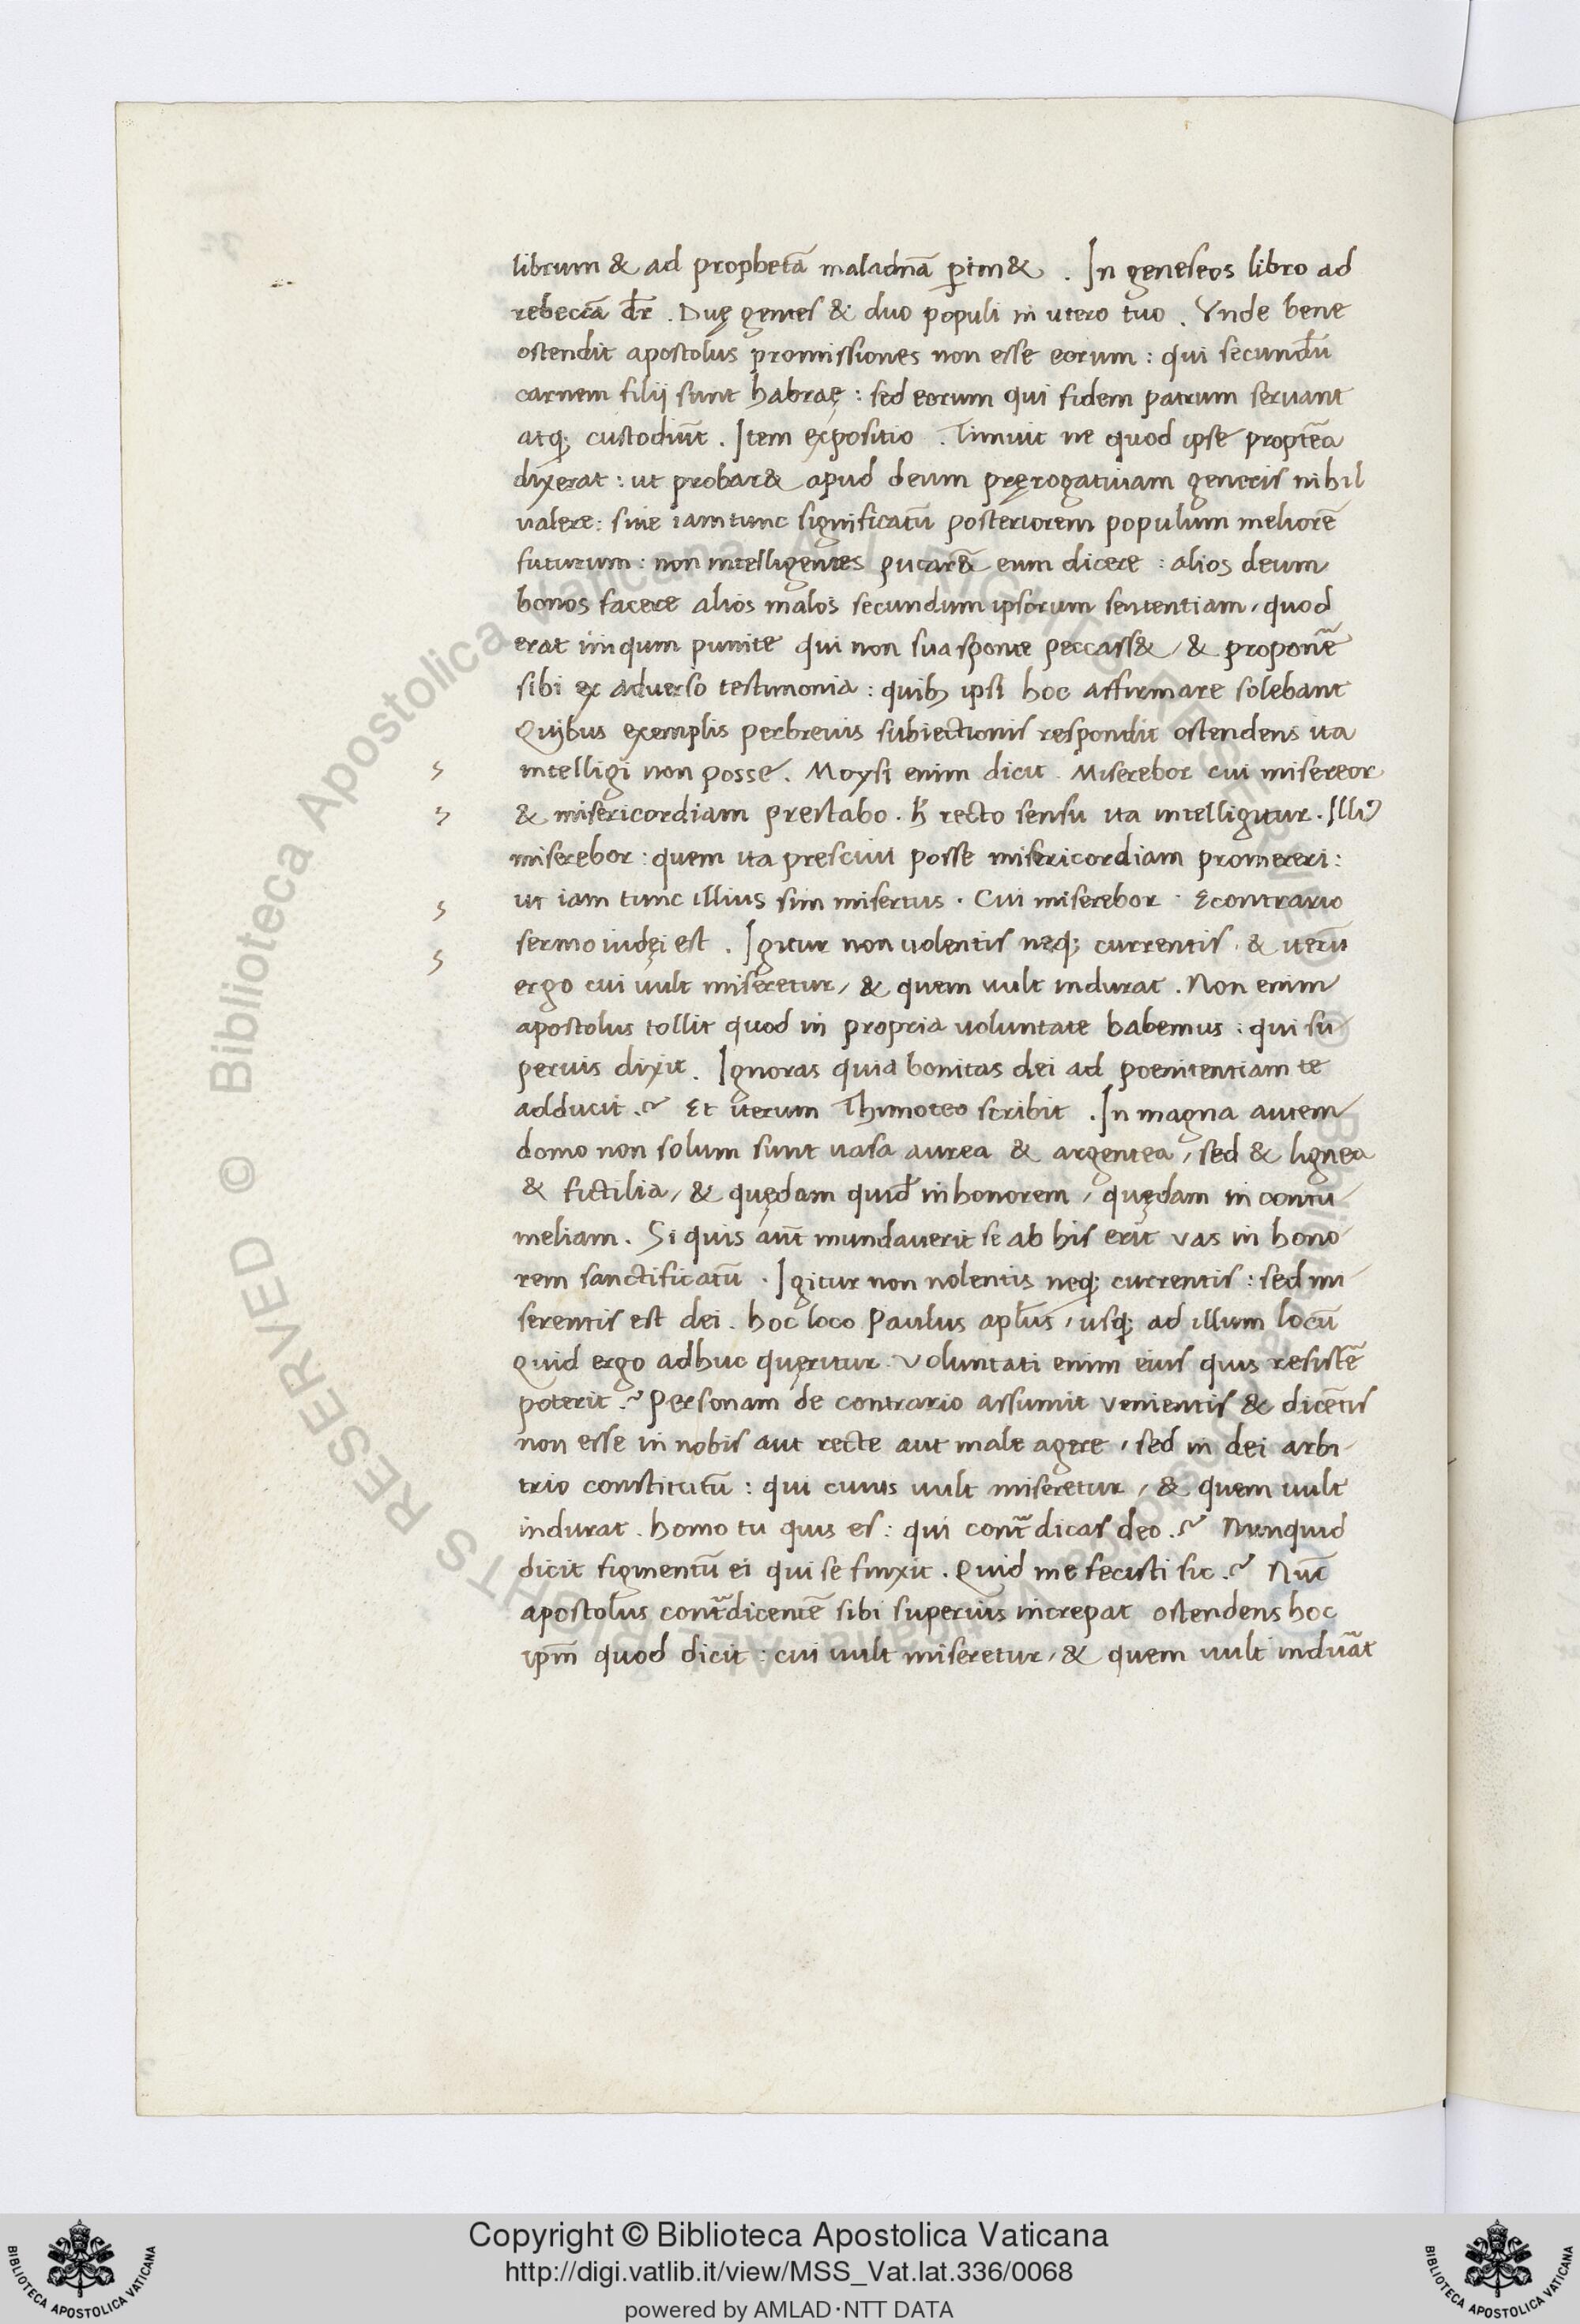 librum & ad prophetā maladnā ꝑtin& . In geneseos libro ad
rebeccā dr̄ . Duę gentes & duo populi in utero tuo . Vnde bene
ostendit apostolus promissiones non esse eorum : qui secundū
carnem filij sunt habraę : sed eorum qui fidem patrum seruant
atq; custodiūt . Item expositio . Timuit ne quod ipse proptēa
dixerat : ut probar& apud deum pręrogatiuam generis nihil
ualere : siue iam tunc significatū posteriorem populum meliorē
futurum : non intelligentes putar& eum dicere : alios deum
bonos facere alios malos secundum ipsorum sententiam, quod
erat iniqum punire qui non sua sponte peccass& / & proponē
sibi ex aduerso testimonia : quib; ipsi hoc affirmare solebant
Quibus exemplis perbreuis subiectionis respondit ostendens ita
intelligi non posse . Moysi enim dicit . Miserebor cui misereor
& misericordiam prestabo . h̄ recto sensu ita intelligitur . Illiꝰ
miserebor : quem ita presciui posse misericordiam promereri :
ut iam tunc illius sim misertus . Cui miserebor . Econtrario
sermo iudęi est . Igitur non uolentis neq; currentis . & iterū
ergo cui uult miseretur / & quem uult indurat . Non enim
apostolus tollit quod in propria uoluntate habemus : qui su
perius dixit . Ignoras quia bonitas dei ad poenitentiam te
adducit .? Et iterum Thimoteo scribit . In magna autem
domo non solum sunt uasa aurea & argentea / sed & lignea
& fictilia / & quędam quid̄ in honorem / quędam in contu
meliam . Si quis aut̄ mundauerit se ab his erit vas in hono
rem sanctificatū . Igitur non nolentis neq; currentis : sed mi
serentis est dei . hoc loco Paulus apl̄us / usq; ad illum locū
quid ergo adhuc quęritur . Voluntati enim eius quis resistē
poterit .? Personam de contrario assumit venientis & dicētis
non esse in nobis aut recte aut male agere / sed in dei arbi
trio constitutū : qui cuius uult miseretur / & quem uult
indurat . homo tu quis es : qui cont̄dicas deo .? Nunquid
dicit figmentū ei qui se finxit . Quid me fecisti sic .? Nūc
apostolus cont̄dicentē sibi superius increpat ostendens hoc
ipm̄ quod dicit : cui uult miseretur / & quem uult indūat
Copyright © Biblioteca Apostolica Vaticana
http://digi.vatlib.it/view/MSS_Vat.lat.336/0068
powered by AMLAD·NTT DATA
BIBLIOTECA APOSTOLICA VATICANA
BIBLIOTECA APOSTOLICA VATICANA